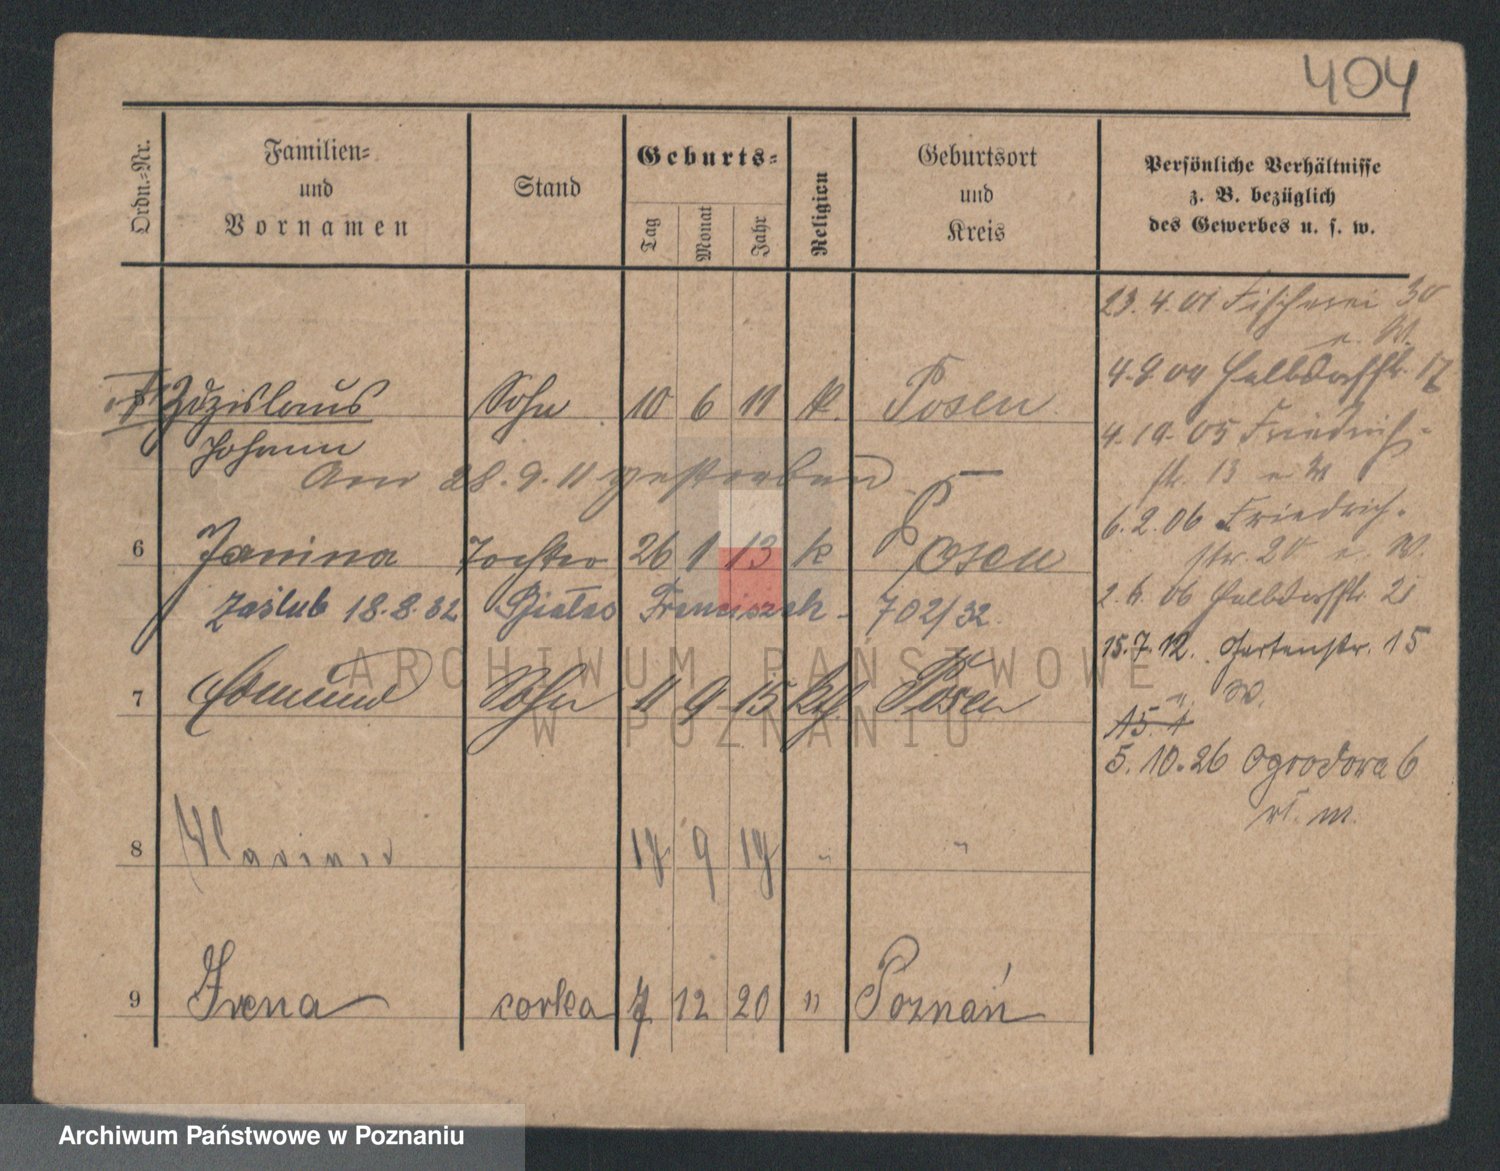 404
Ordn.-Nr.
Familien-
und
Vornamen
Stand
Geburts-
Tag
Monat
Jahr
Religion
Geburtsort
und
Kreis
Persönliche Verhältnisse
z. B. bezüglich
des Gewerbes u. s. w.
23.4.01 Fischerei 30
n. W.
4.9.04 Halbdorfstr. 17
4.10.05 Friedrich-
str. 13 n W
6.2.06 Friedrich-
str. 20 n. W.
2.6.06 Halbdorfstr. 21
15.7.12. Gartenstr. 15
n. W.
15.1
5.10.26 Ogrodowa 6
m.
† Zdzislaus Sohn 10 6 11 k. Posen
Johann
Am 28.9.11 gestorben
6 Janina Tochter 26 1 13 k Posen
Zaślub 18.8.32 Franciszek - 702/32.
7 Edmund Sohn 11 9 15 kth. Posen
8 19 9 19 " "
9 Irena corka 7 12 20 " Poznań
ARCHIWUM PAŃSTWOWE
W POZNANIU
Archiwum Państwowe w Poznaniu